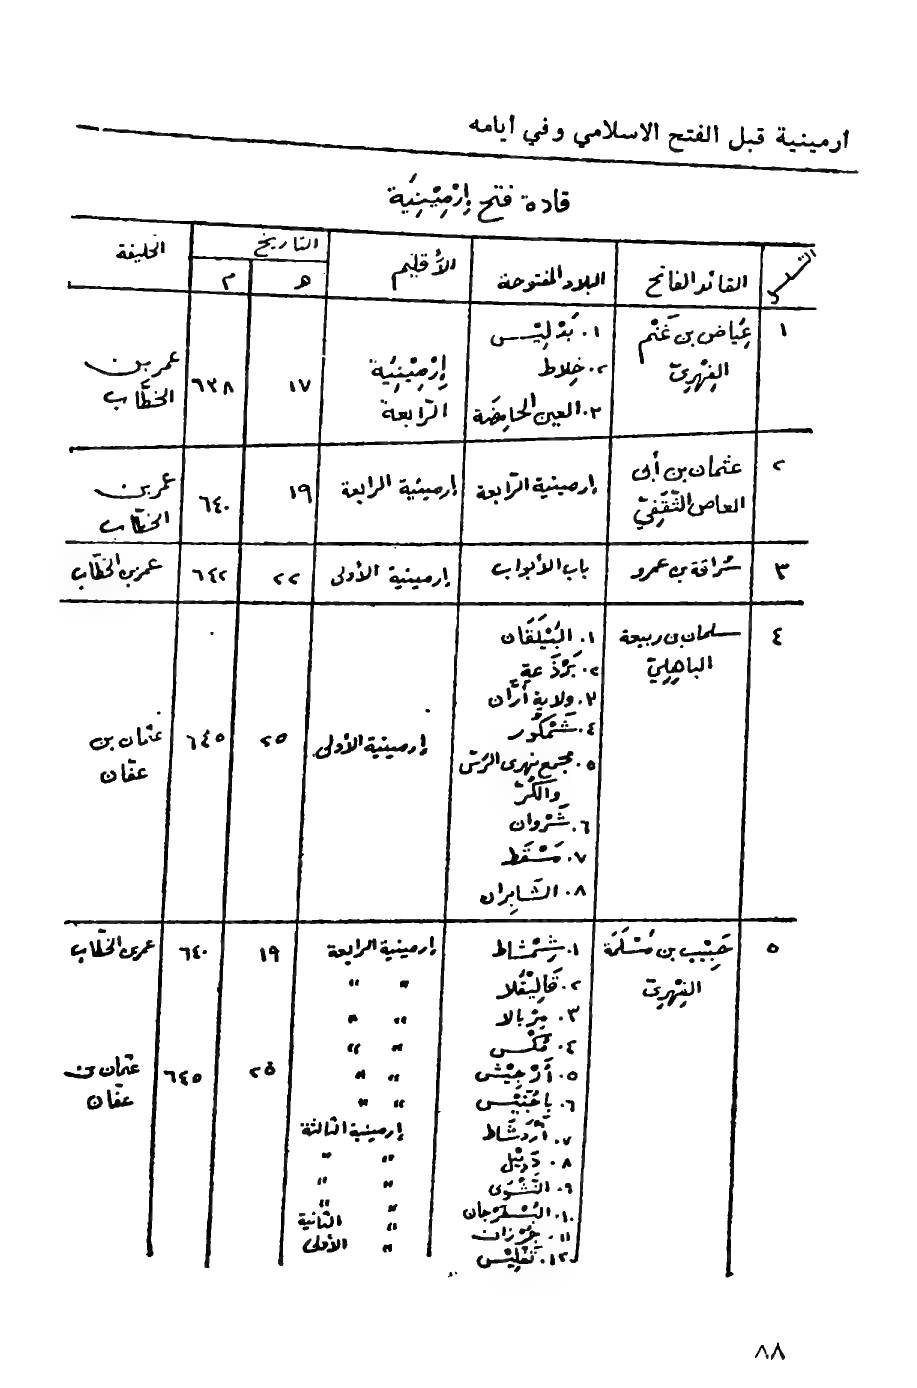 أرمينية قبل الفتح الاسلامي وفي أيامه
قادة فتح إِرْمِيْنِيَة
التسلسل
القائد الفاتح
البلاد المفتوحة
الأقليم
التاريخ
هـ
م
الخليفة
١
عِيَاض بن غَنْم
الفِهْرِيّ
١. بَدْلِيْس
٢. خِلاط
٣. العين الحامِضَة
إِرْمِيْنِيَة
الرّابعة
١٧
٦٣٨
عمر بن
الخطّاب
٢
عثمان بن أبي
العاص الثَّقَفِيّ
إرمينية الرّابعة
إرمينية الرابعة
١٩
٦٤٠
عمر بن
الخطّاب
٣
سُراقة بن عمرو
باب الأبواب
إرمينية الأولى
٢٢
٦٤٢
عمر بن الخطّاب
٤
سلمان بن ربيعة
الباهِلِيّ
١. البَيْلَقَان
٢. بَرْذَعة
٣. ولاية أَرَّان
٤. شَمْكُور
٥. مجمع نهري الرّسّ
والكُرّ
٦. شَرْوان
٧. مَسْقَط
٨. الشَّابِران
إرمينية الأولى
٢٥
٦٤٥
عثمان بن
عفّان
٥
حَبِيْب بن مَسْلَمَة
الفِهْرِيّ
١. شِمْشاط
إرمينية الرابعة
١٩
٦٤٠
عمر بن الخطّاب
٢. قَالِيْقَلا
" "
٣. مِرْبالا
" "
٤. مُكْس
" "
٥. أَرْجِيْش
" "
٢٥
٦٤٥
عثمان بن
عفّان
٦. باجُنَيْس
" "
٧. أَرْدَشَاط
إرمينية الثالثة
٨. دَبِيْل
" "
٩. النَّشَوَى
" "
١٠. البُسْفُرّجان
" "
١١. جُرْزان
" الثانية
١٢. تَفْلِيْس
" الأولى
٨٨